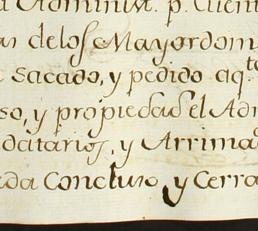 Administ. p. Cuent
as delos Mayordom
sacado, y pedido aq.to
so, y propiedad el Ad
datarios, y Arrima
da Concluso y Cerra